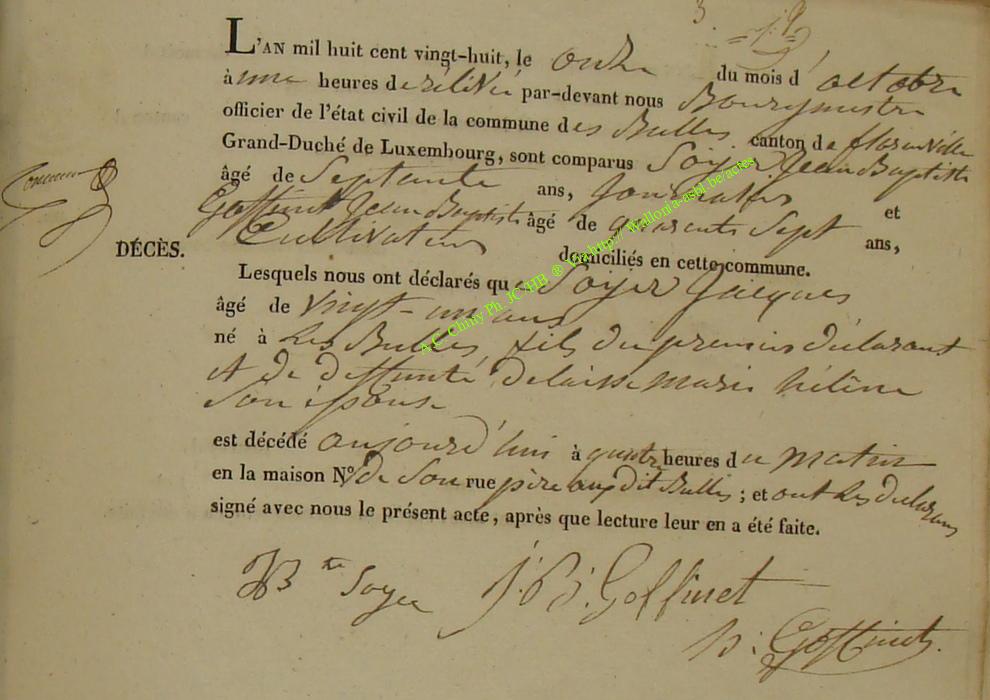 L'AN mil huit cent vingt-huit, le onze du mois d'octobre
à une heures de rélévée par-devant nous Bourgmestre
officier de l'état civil de la commune des Bulles canton de florenville
Grand-Duché de Luxembourg, sont comparus Soyer Jean Baptiste
âgé de Septante ans, Journalier et
Goffinet Jean Baptiste âgé de quarente Sept ans,
Cultivateur domiciliés en cette commune.
DÉCÈS.
Lesquels nous ont déclarés que Soyer Jacques
âgé de vingt-un ans
né à Les Bulles, fils du premier déclarant
et de deffunte Delaisse Marie hélène
Son épouse
est décédé aujourd'hui à quatre heures du matin
en la maison N° de Son rue père auxdit Bulles ; et ont les déclarans
signé avec nous le présent acte, après que lecture leur en a été faite.
JB te Soyer J. B. Goffinet
Goffinet.
A.C. Chiny Ph. JC HB ® Via http:// Wallonia-asbl.be/actes